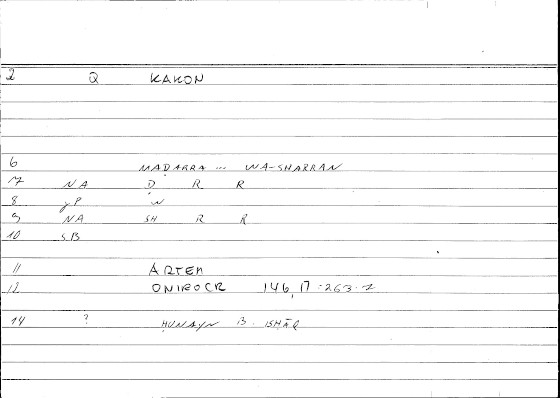 2 Q KAKON
6 MAḌARRA ... WA-SHARRAN
7 NA Ḍ R R
8 yP W
9 NA SH R R
10 SB
11 ARTEM
12 ONIROCR 146,17 - 263.7
14 ? ḤUNAYN B. ISḤĀQ